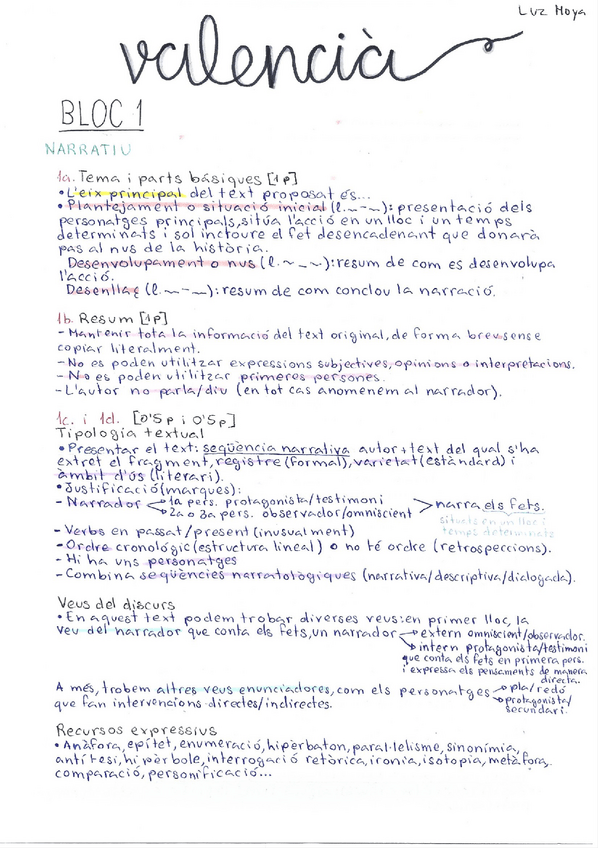 Luz Moya
valencià
BLOC 1
NARRATIU
1a. Tema i parts básiques [1p]
•L'eix principal del text proposat és...
•Plantejament o situació inicial (l.~-~): presentació dels
personatges principals, sitúa l'acció en un lloc i un temps
determinats i sol incloure el fet desencadenant que donarà
pas al nus de la història.
Desenvolupament o nus (l.~-~): resum de com es desenvolupa
l'acció.
Desenllaç (l.~-~): resum de com conclou la narració.
1b. Resum [1p]
- Mantenir tota la informació del text original, de forma breu sense
copiar literalment.
- No es poden utilitzar expressions subjectives, opinions o interpretacions.
- No es poden utilitzar primeres persones.
- L'autor no parla/diu (en tot cas anomenem al narrador).
1c. i 1d. [0'5p i 0'5p]
Tipología textual
•Presentar el text: seqüència narrativa autor+text del qual s'ha
extret el fragment, registre (formal), varietat (estàndard) i
àmbit d'ús (literari).
•Justificació (marques):
- Narrador → 1a pers. protagonista/testimoni
→ 2a o 3a pers. observador/omniscient
> narra els fets.
situats en un lloc i
temps determinats
- Verbs en passat/present (inusualment)
- Ordre cronològic (estructura lineal) o no té ordre (retrospeccions).
- Hi ha uns personatges
- Combina seqüències narratològiques (narrativa/descriptiva/dialogada).
Veus del discurs
•En aquest text podem trobar diverses veus: en primer lloc, la
veu del narrador que conta els fets, un narrador → extern omniscient/observador.
→ intern protagonista/testimoni
que conta els fets en primera pers.
i expressa els pensaments de manera
directa.
A més, trobem altres veus enunciadores, com els personatges → pla/redó
que fan intervencions directes/indirectes. → protagonista/
secundari.
Recursos expressius
•Anàfora, epítet, enumeració, hipèrbaton, paral·lelisme, sinonímia,
antítesi, hipèrbole, interrogació retòrica, ironia, isotopia, metàfora,
comparació, personificació...